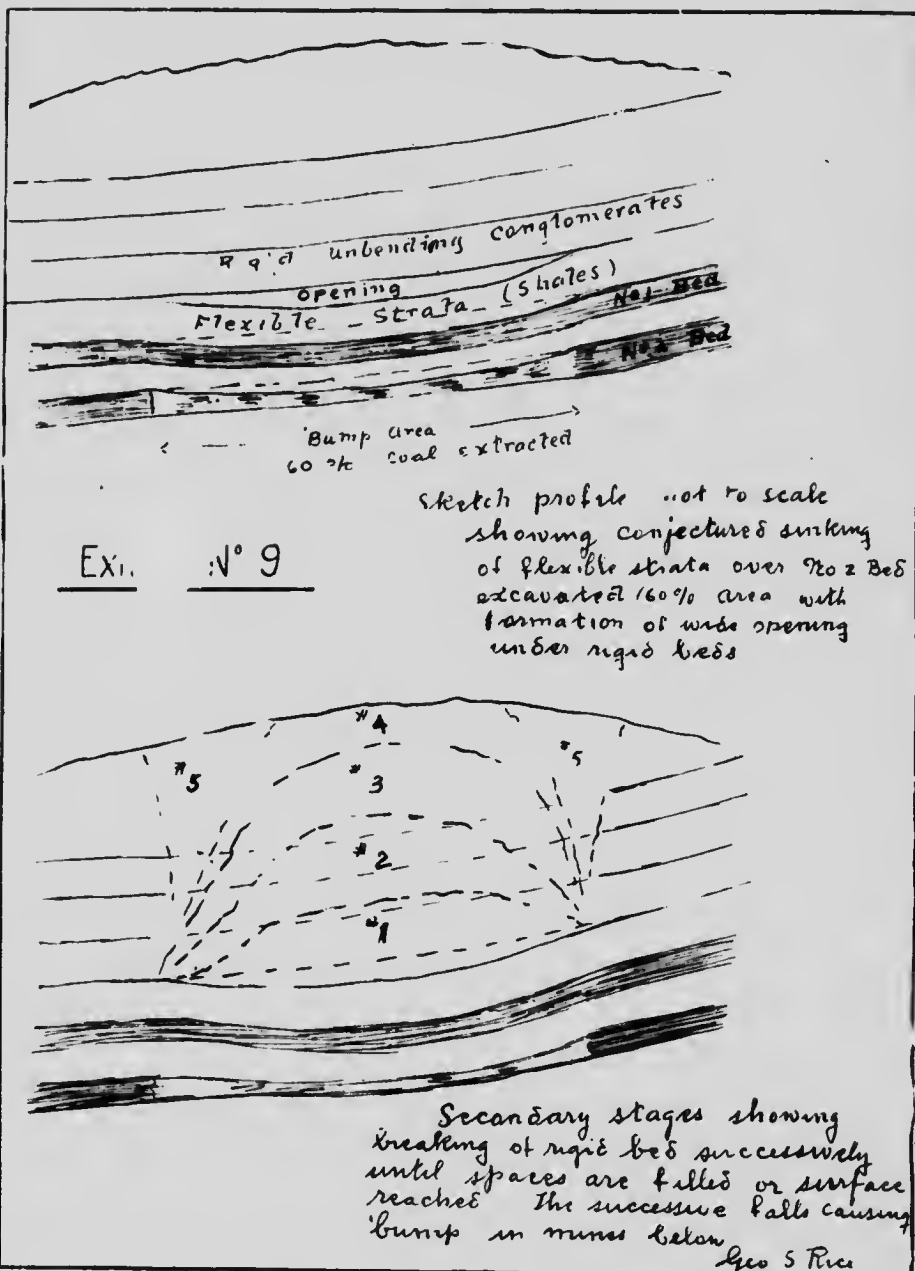 Rigid unbending conglomerates
Opening
Flexible Strata (Shales)
No 1 Bed
No 2 Bed
Bump area
60 % Coal extracted
Sketch profile not to scale
showing conjectured sinking
of flexible strata over No 2 Bed
excavated 60% area with
formation of wide opening
under rigid beds
Exi. No 9
#4
#5
#3
#5
#2
#1
Secondary stages showing
breaking of rigid bed successively
until spaces are filled or surface
reached The successive falls causing
bump in mines below
Geo S Rice